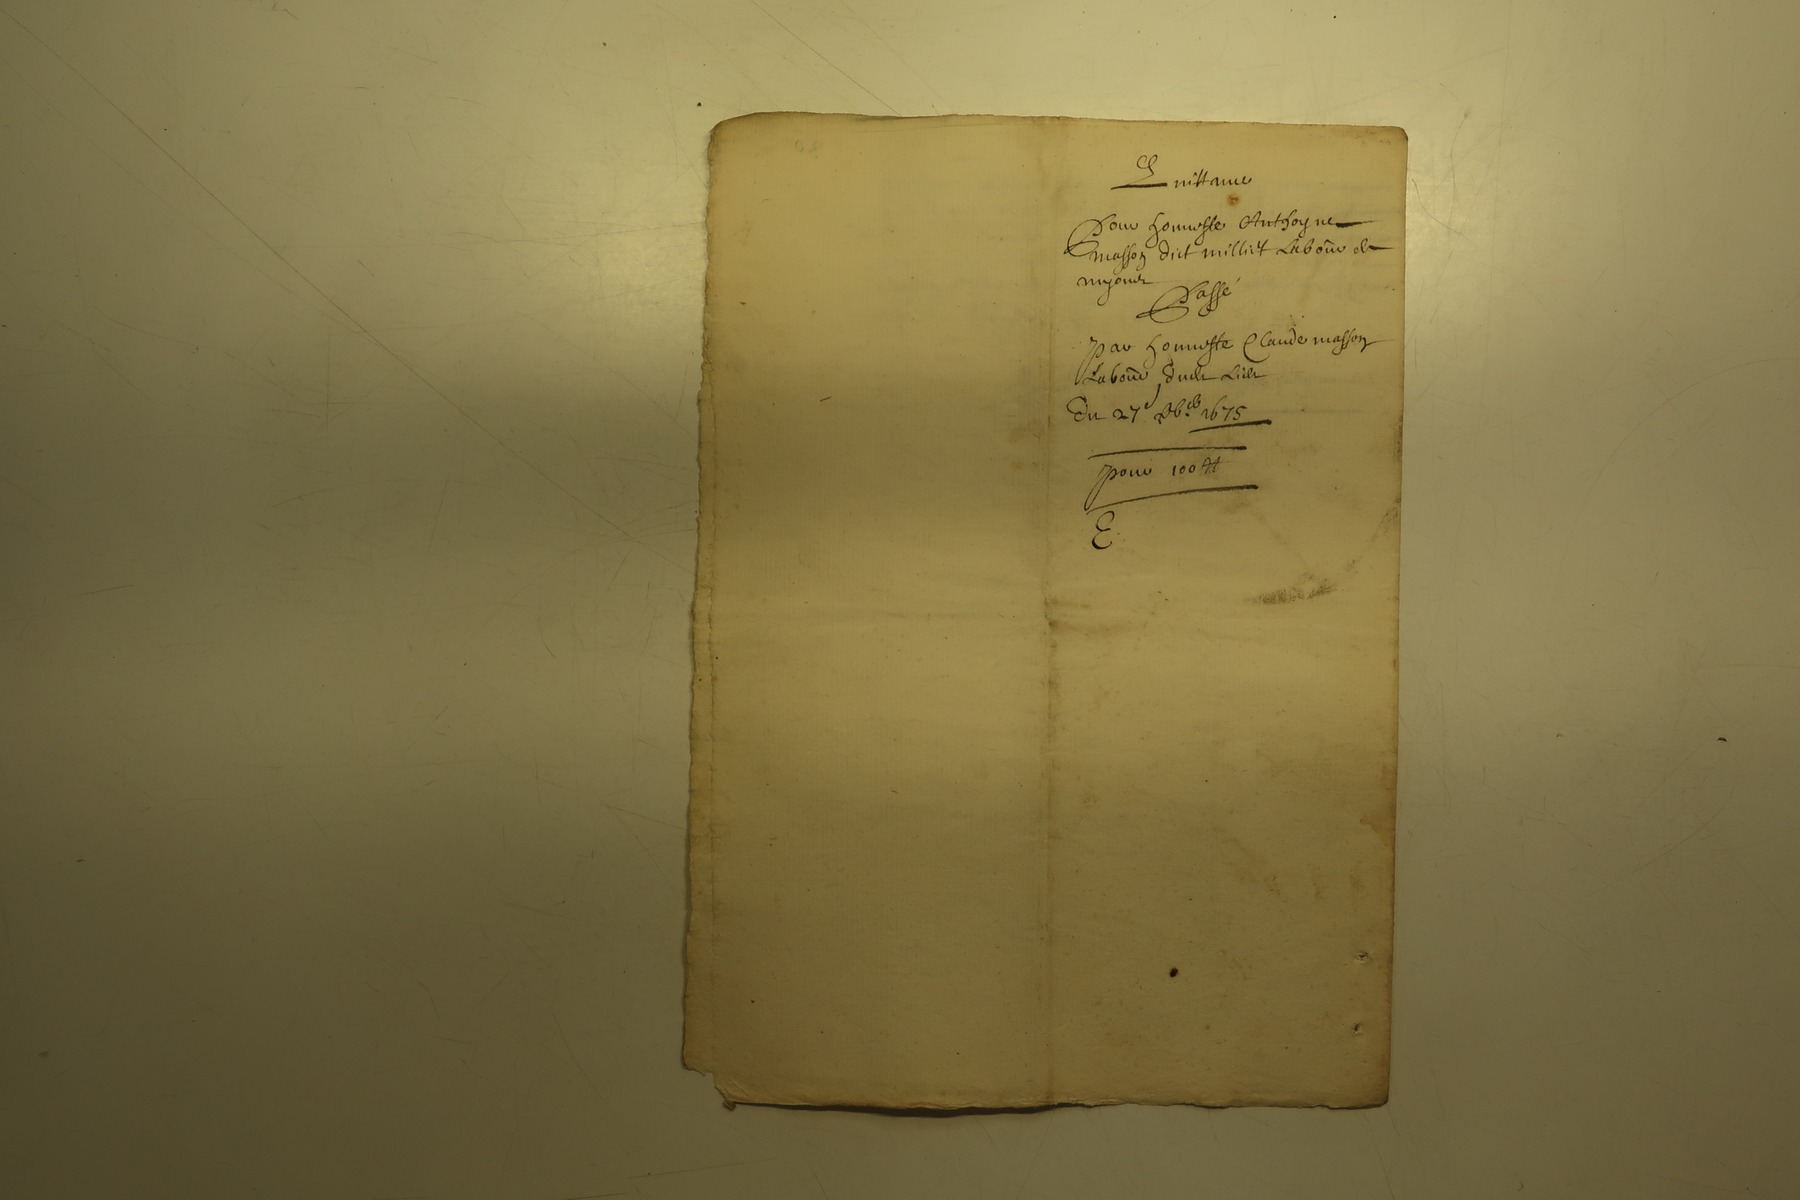 Quittance
Pour honneste Anthoyne
masson dict milliet Labour̃ de
Passé
par honneste Claude masson
Labour̃ dud lieu
Du 27e 1675
pour 100 ₶
E